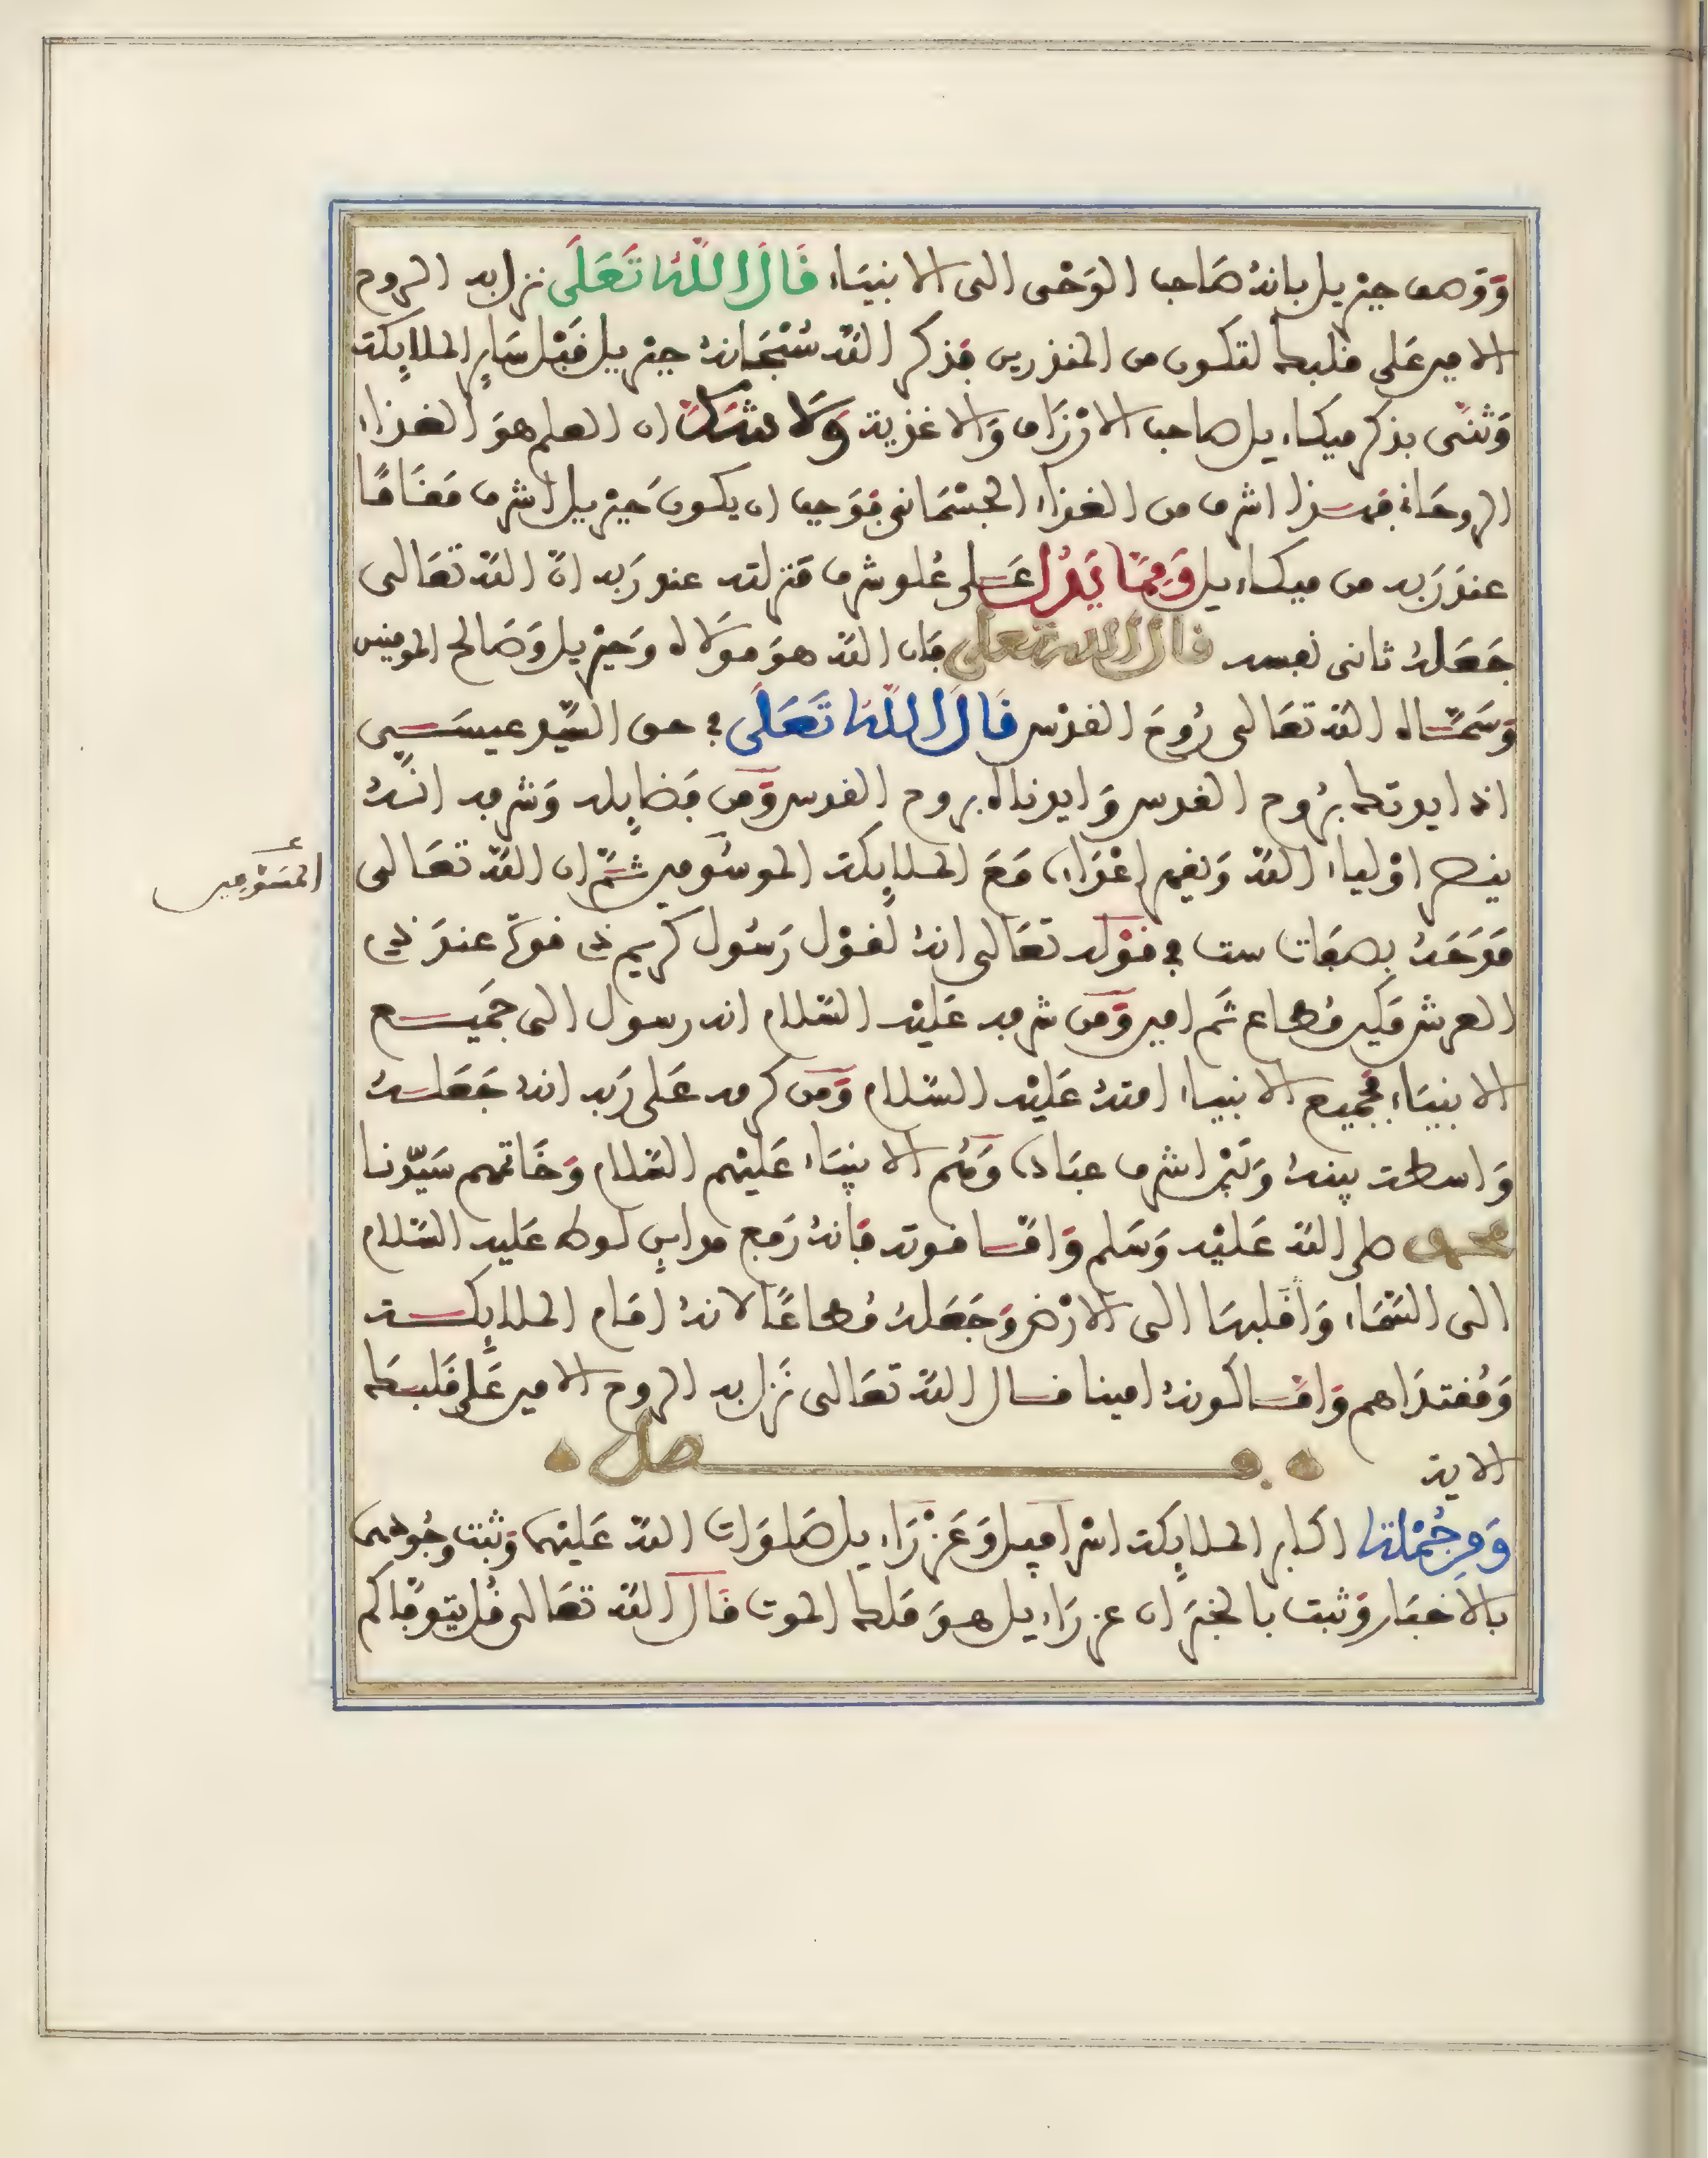 وَوَصف جبريل بانهُ صَاحب الوَحْى الى الانبيَاء قَالَ اللَّهُ تَعَلَى نزل به الروح
الامين عَلى قلبك لتكون من المنذرين فَذكر الله سُبْحَانهُ جبريل قَبْل سَايِر الملايِكة
وَثنَّى بذكر ميكاءيل صاحب الارْزَاق وَالاغذية وَلا شَكَّ ان العلم هوَ الغذاء
الروحَانى فهـذا اشرف من الغذاء الجسْمَانى فوَجب ان يكون جبْريل اشرف مَقَامًا
عندَ رَبه من ميكاءيل وَمِمَّا يَدُل عَلى عُلو شرف مَنزلته عند رَبه انّ الله تعَالى
جَعَلهُ ثانى نفسه قال الله تعلى فان الله هوَ مَوْلاه وَجبْريل وَصَالح المومنين
وَسَمَّاه الله تعَالى رُوحَ القدْس قَالَ اللَّهُ تَعَلَى فى حق السَّيد عيسَـى
اذ ايدتك برُوح القدس وَايدناه بروح القدس وَمن فَضايِله وَشرفه انـهُ
ينصر اوْلياء الله وَيقهر اعْدَاءه مَعَ الملايِكة الموسُومين ثمَّ ان الله تعَالى
المسَوّمين
مَدَحَهُ بصفَات ست فى قوْله تعَالى انهُ لقوْل رَسُول كريم ذى قوة عندَ ذى
العرش مَكين مُطاع ثَم امين وَمن شرفه عَليْه السَّلام انه رسول الى جَميـع
الانبيَاء فجميع الانبياء امتهُ عَليْه السَّلام وَمن كرمه عَلى رَبه انهُ جَعَلـهُ
وَاسطة بينهُ وَبَيْن اشرف عبَاده وَهُم الانبيَاء عَليْهم السَّلام وَخَاتمهم سَيّدنا
محمد صلى الله عَليْه وَسَلم وَامَّـا قوته فَانهُ رَفع مداين لوط عَليه السَّلام
الى السَّمَاء وَاقلبهَا الى الارْض وَجَعَلهُ مُطَاعًا لانهُ امَام الملايِكـة
وَمُقتدَاهم وَامَّـا كونهُ امينا قـال الله تعَالى نَزل به الروح الامين عَلى قلبـك
الاية فـصل
وَمِن جُمْلة اكابر الملايِكة اسْرَافيل وَعَزْرَاءيل صَلوَات الله عَليْهما وَثبت وجُودهما
بالاخبَار وَثبت بالخبَر ان عزرَاءيل هـوَ مَلك الموت قَالَ الله تعَالى قُل يتوفَّاكم